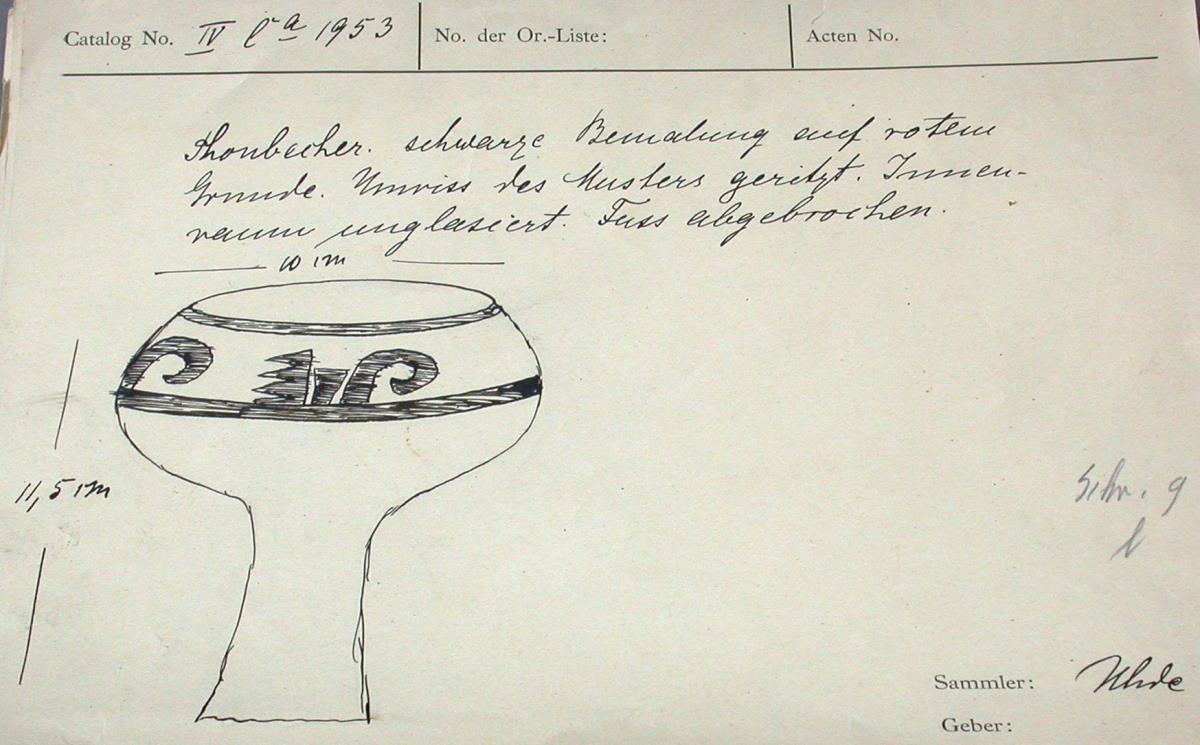 Catalog No. IV Ca 1953
No. der Or.-Liste:
Acten No.
Thonbecher. schwarze Bemalung auf rotem
Grunde. Umriss des Musters geritzt. Innen-
raum unglasiert. Fuss abgebrochen.
10 cm
11,5 cm
Schr. 9
l
Sammler: Uhde
Geber: